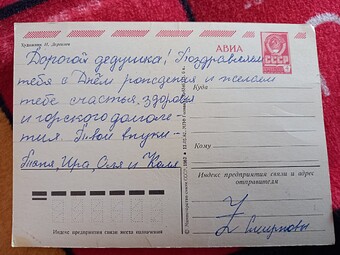 Художник И. Дергилев
АВИА
СССР
Дорогой дедушка! Поздравляем
тебя с Днём рождения и желаем
тебе счастья, здоровья
и горского долголе-
тия. Твои внуки-
Таня, Ира, Оля и Коля
Куда
Кому
Индекс предприятия связи и адрес
отправителя
Смирновы
Индекс предприятия связи места назначения